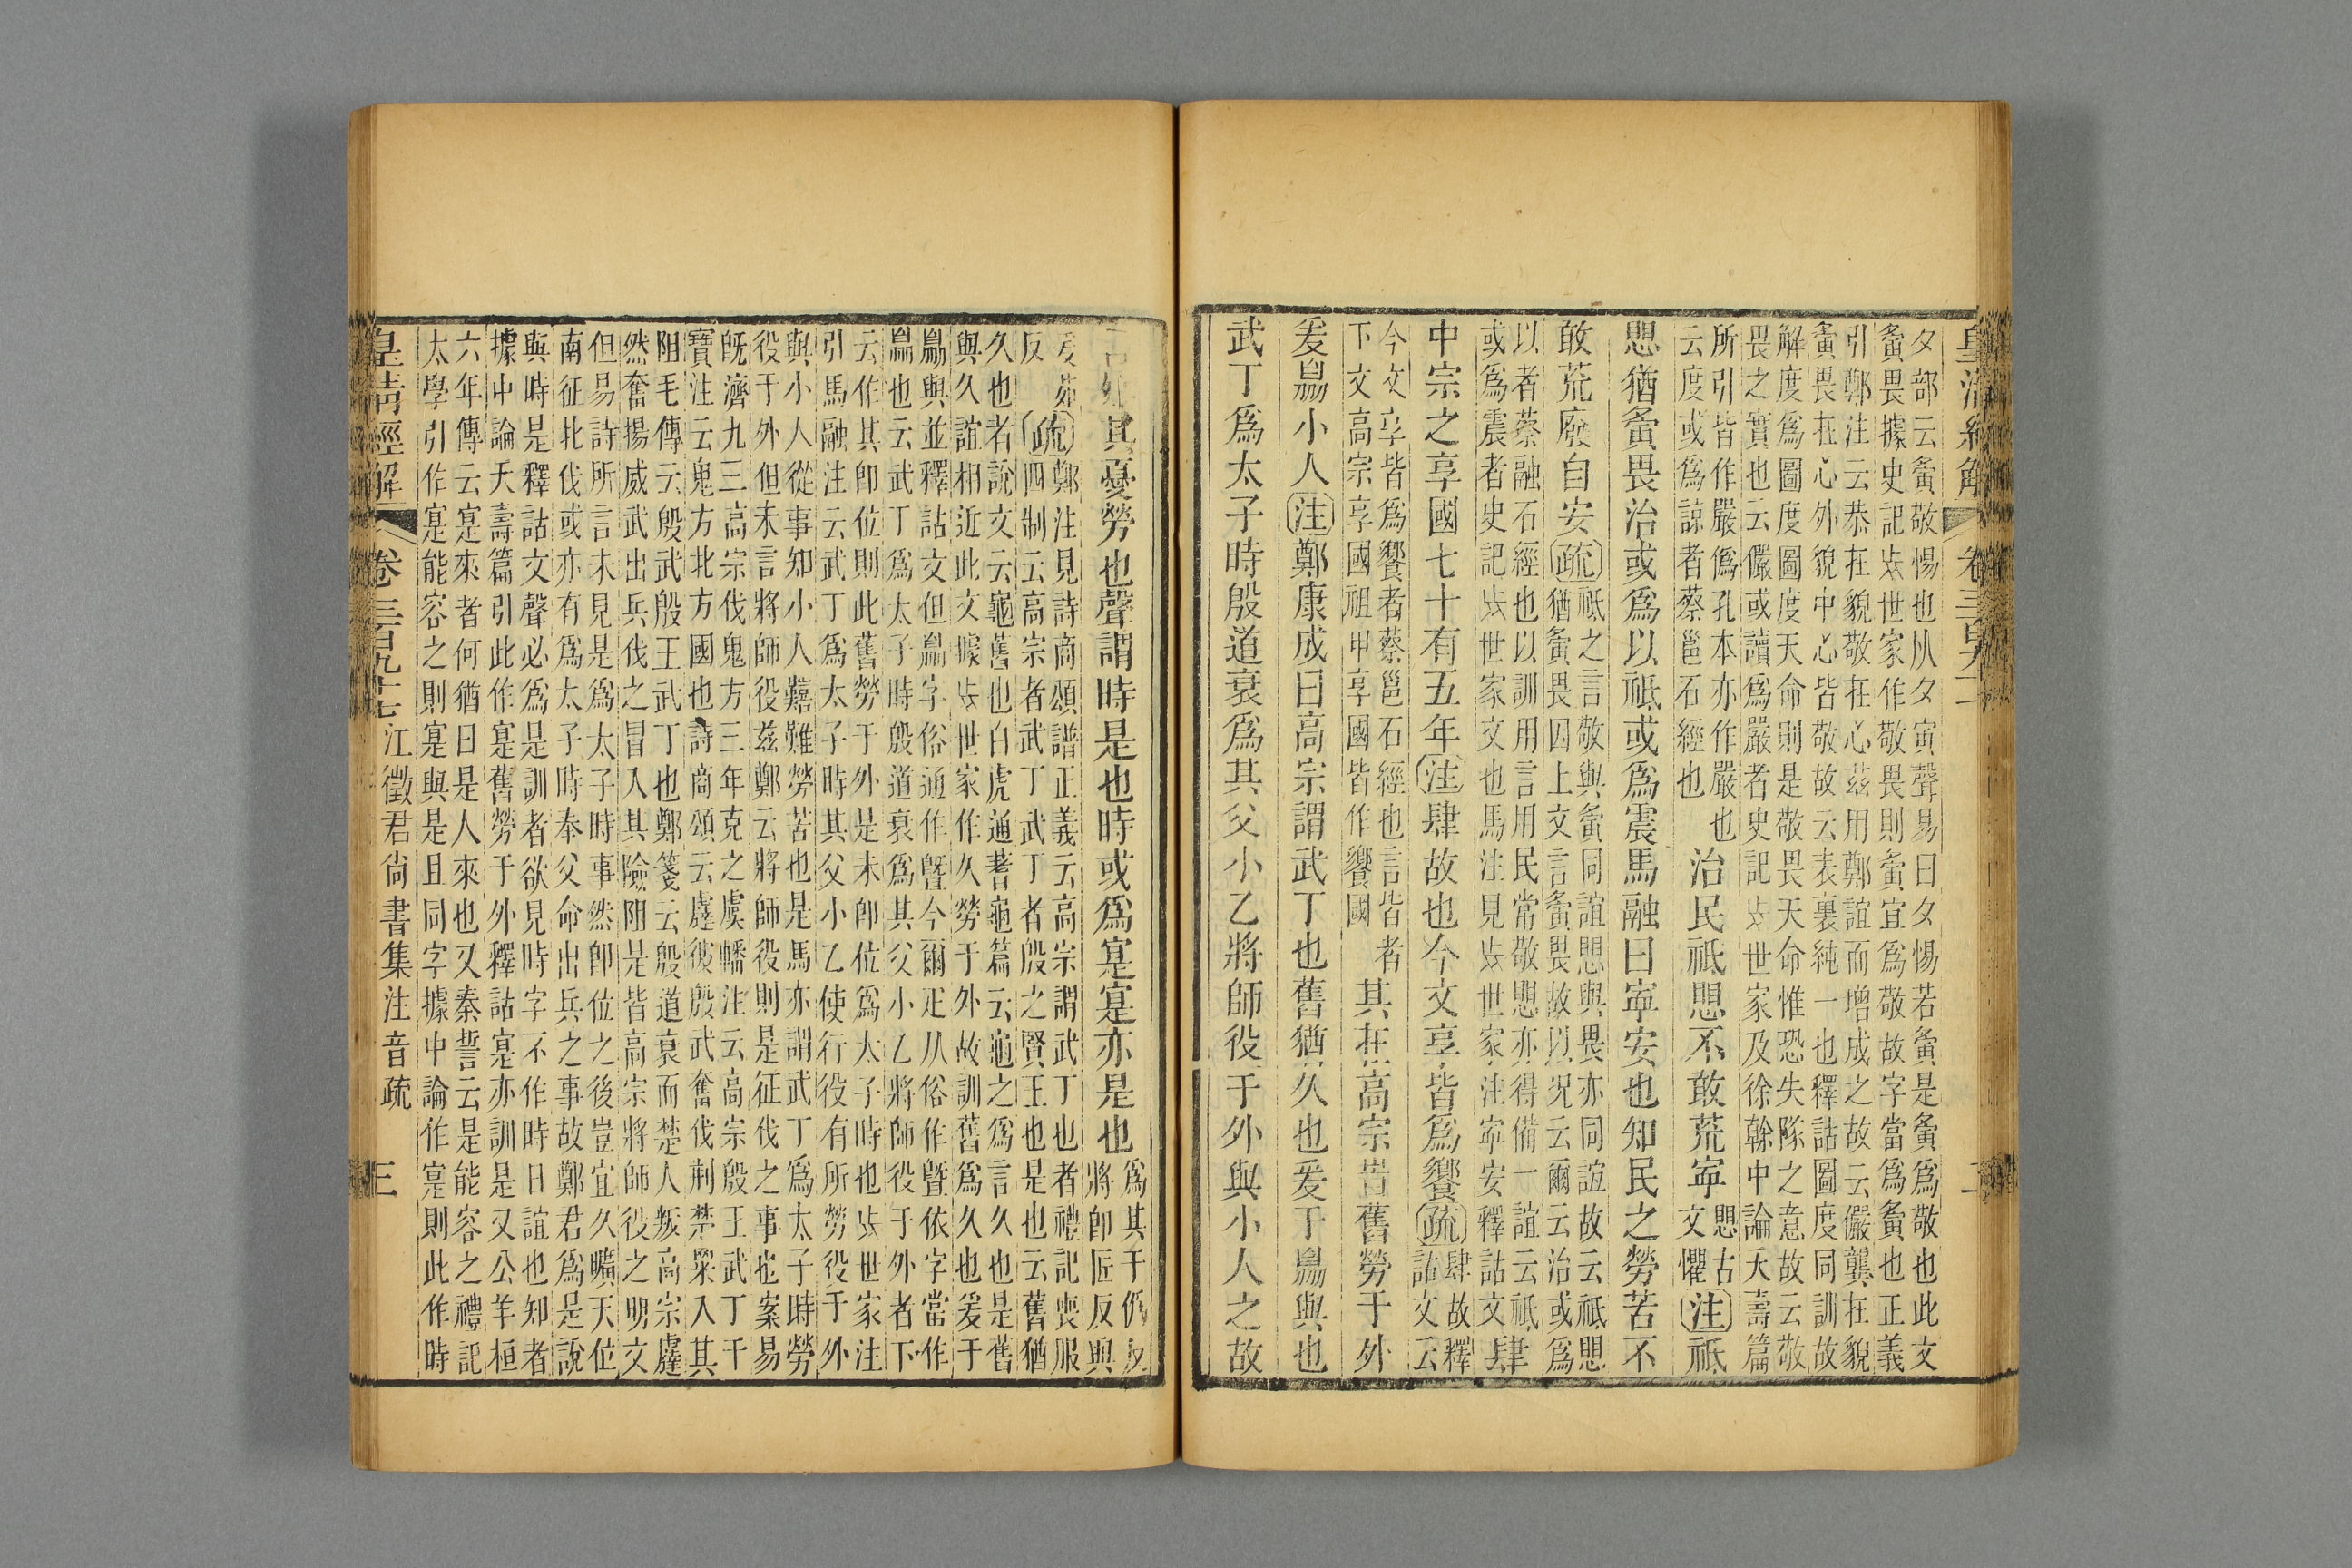 皇清經解
夕部云夤敬惕也从夕寅聲易曰夕惕若夤是夤爲敬也此文
夤畏據史記𠀍世家作敬畏則夤宜爲敬故字當爲夤也正義
引鄭注云恭在貌敬在心茲用鄭誼而增成之故云儼龔在貌
夤畏在心外貌中心皆敬故云表裏純一也釋詁圖度同訓故
解度爲圖度圖度天命則是敬畏天命惟恐失隊之意故云敬
畏之實也云儼或讀爲嚴者史記𠀍世家及徐榦中論夭壽篇
所引皆作嚴爲孔本亦作嚴也
云度或爲諒者蔡邕石經也
治民祗愳不敢荒寧
愳古
文懼
注祗
愳猶夤畏治或爲以祗或爲震馬融曰寧安也知民之勞苦不
敢荒廢自安疏
祗之言敬與夤同誼愳與畏亦同誼故云祗愳
猶夤畏因上文言夤畏故以況云爾云治或爲
以者蔡融石經也以訓用言用民常敬愳亦得備一誼云祗
或爲震者史記𠀍世家文也馬注見𠀍世家注寧安釋詁文
肆
中宗之享國七十有五年注肆故也今文享皆爲饗疏
肆故釋
詁文云
今文享皆爲饗者蔡邕石經也言皆者
下文高宗享國祖甲享國皆作饗國
其在高宗旹舊勞于外
爰曏小人注鄭康成曰高宗謂武丁也舊猶久也爰于曏與也
武丁爲太子時殷道衰爲其父小乙將師役于外與小人之故
其憂勞也聲謂時是也時或爲寔寔亦是也
爲其于僞反
將卽匠反與
反
疏
鄭注見詩商頌譜正義云高宗謂武丁也者禮記喪服
四制云高宗者武丁武丁者殷之賢王也是也云舊猶
久也者說文云龜舊也白虎通蓍龜篇云龜之爲言久也是舊
與久誼相近此文據𠀍世家作久勞于外故訓舊爲久也爰于
曏與並釋詁文但曏字俗通作曁今爾疋从俗作曁依字當作
曏也云武丁爲太子時殷道衰爲其父小乙將師役于外者下
云作其卽位則此舊勞于外是未卽位爲太子時也𠀍世家注
引馬融注云武丁爲太子時其父小乙使行役有所勞役于外
與小人從事知小人囏難勞苦也是馬亦謂武丁爲太子時勞
役于外但未言將師役茲鄭云將師役則是征伐之事也案易
旣濟九三高宗伐鬼方三年克之虞幡注云高宗殷王武丁干
寶注云鬼方北方國也詩商頌云𧇽彼殷武奮伐荆楚罙入其
阻毛傳云殷武殷王武丁也鄭箋云殷道衰而楚人叛高宗𧇽
然奮揚威武出兵伐之冒入其險阻是皆高宗將師役之明文
但易詩所言未見是爲太子時事然卽位之後豈宜久曠天位
南征北伐或亦有爲太子時奉父命出兵之事故鄭君爲是說
與時是釋詁文聲必爲是訓者欲見時字不作時日誼也知者
據中論夭壽篇引此作寔舊勞于外釋詁寔亦訓是又公羊桓
六年傳云寔來者何猶曰是人來也又秦誓云是能容之禮記
太學引作寔能容之則寔與是且同字據中論作寔則此作時
皇清經解
卷三百九十七江徵君尙書集注音疏
三